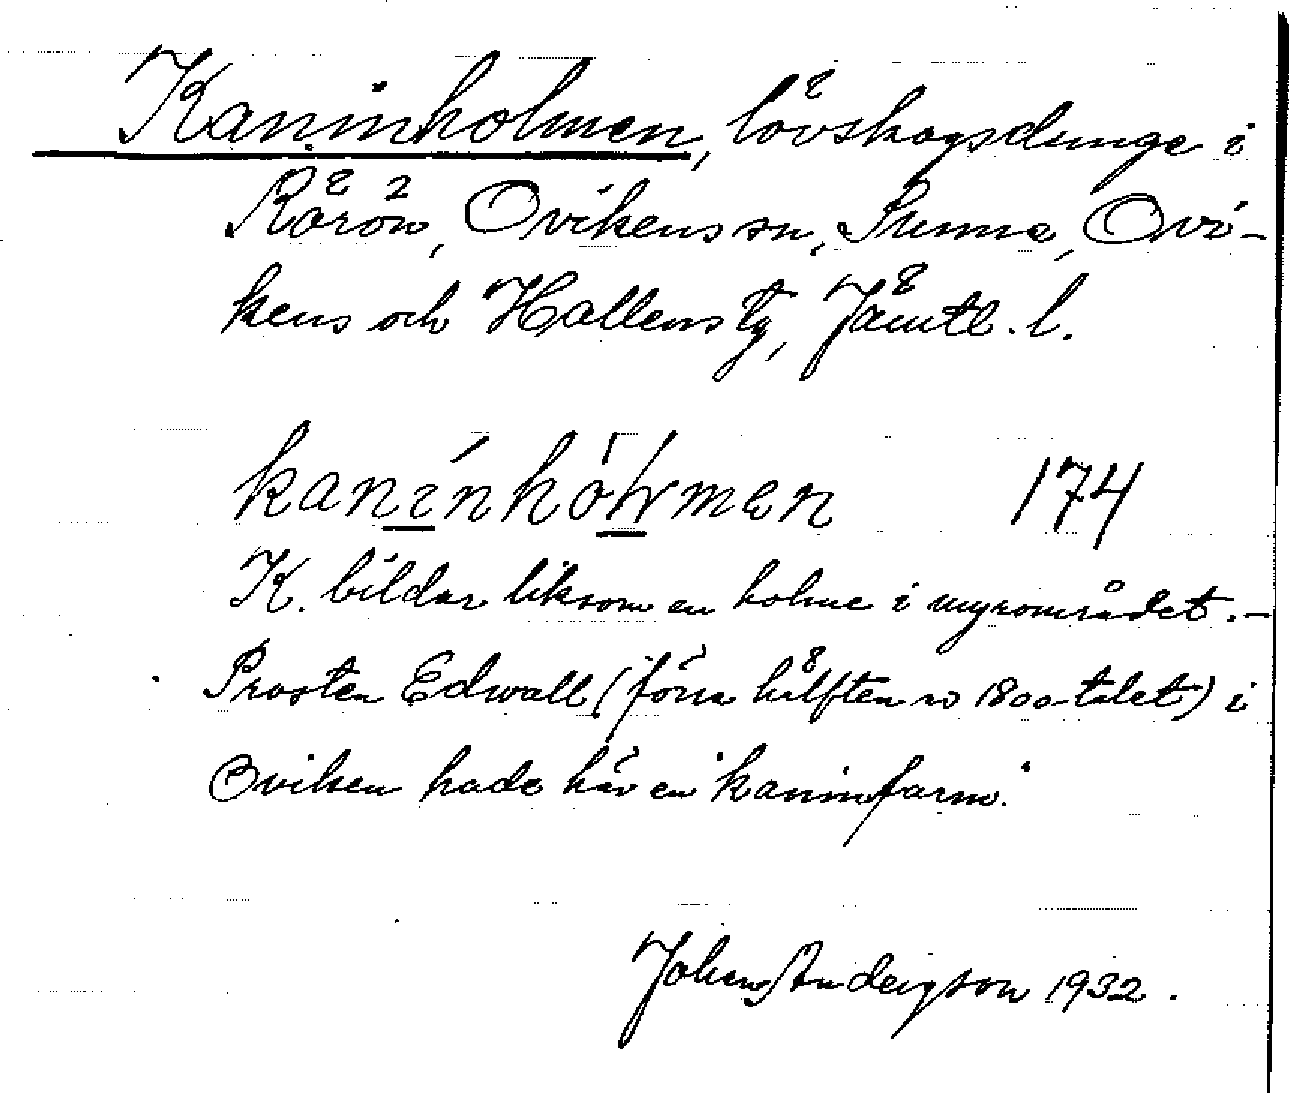 Kaninholmen, lövskogsdunge i
Rörön, Ovikens sn, Sunne, Ovi-
kens och Hallens tg, Jämtl. l.
kanínhòlmen 174
K. bildar liksom en holme i myrområdet. -
Prosten Edwall (förra hälften av 1800-talet) i
Oviken hade här en "kaninfarm."
Johan Anderzson 1932.